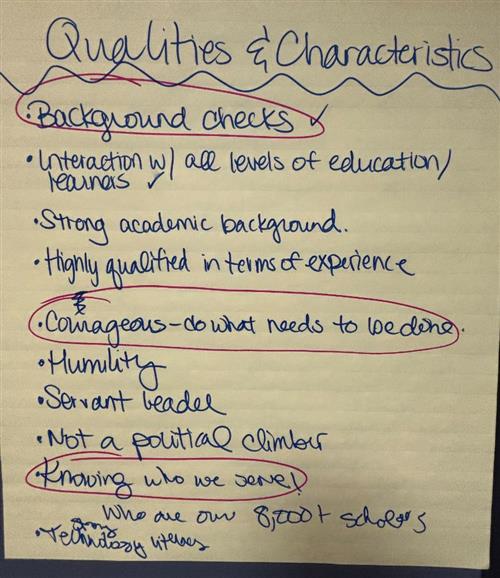 Qualities & Characteristics
• Background checks ✓
• Interaction w/ all levels of education/
learners ✓
• Strong academic background.
• Highly qualified in terms of experience
• Courageous - do what needs to be done.
• Humility
• Servant leader
• Not a political climber
• Knowing who we serve!
Who are our 8,000+ scholars
strong
• Technology literacy